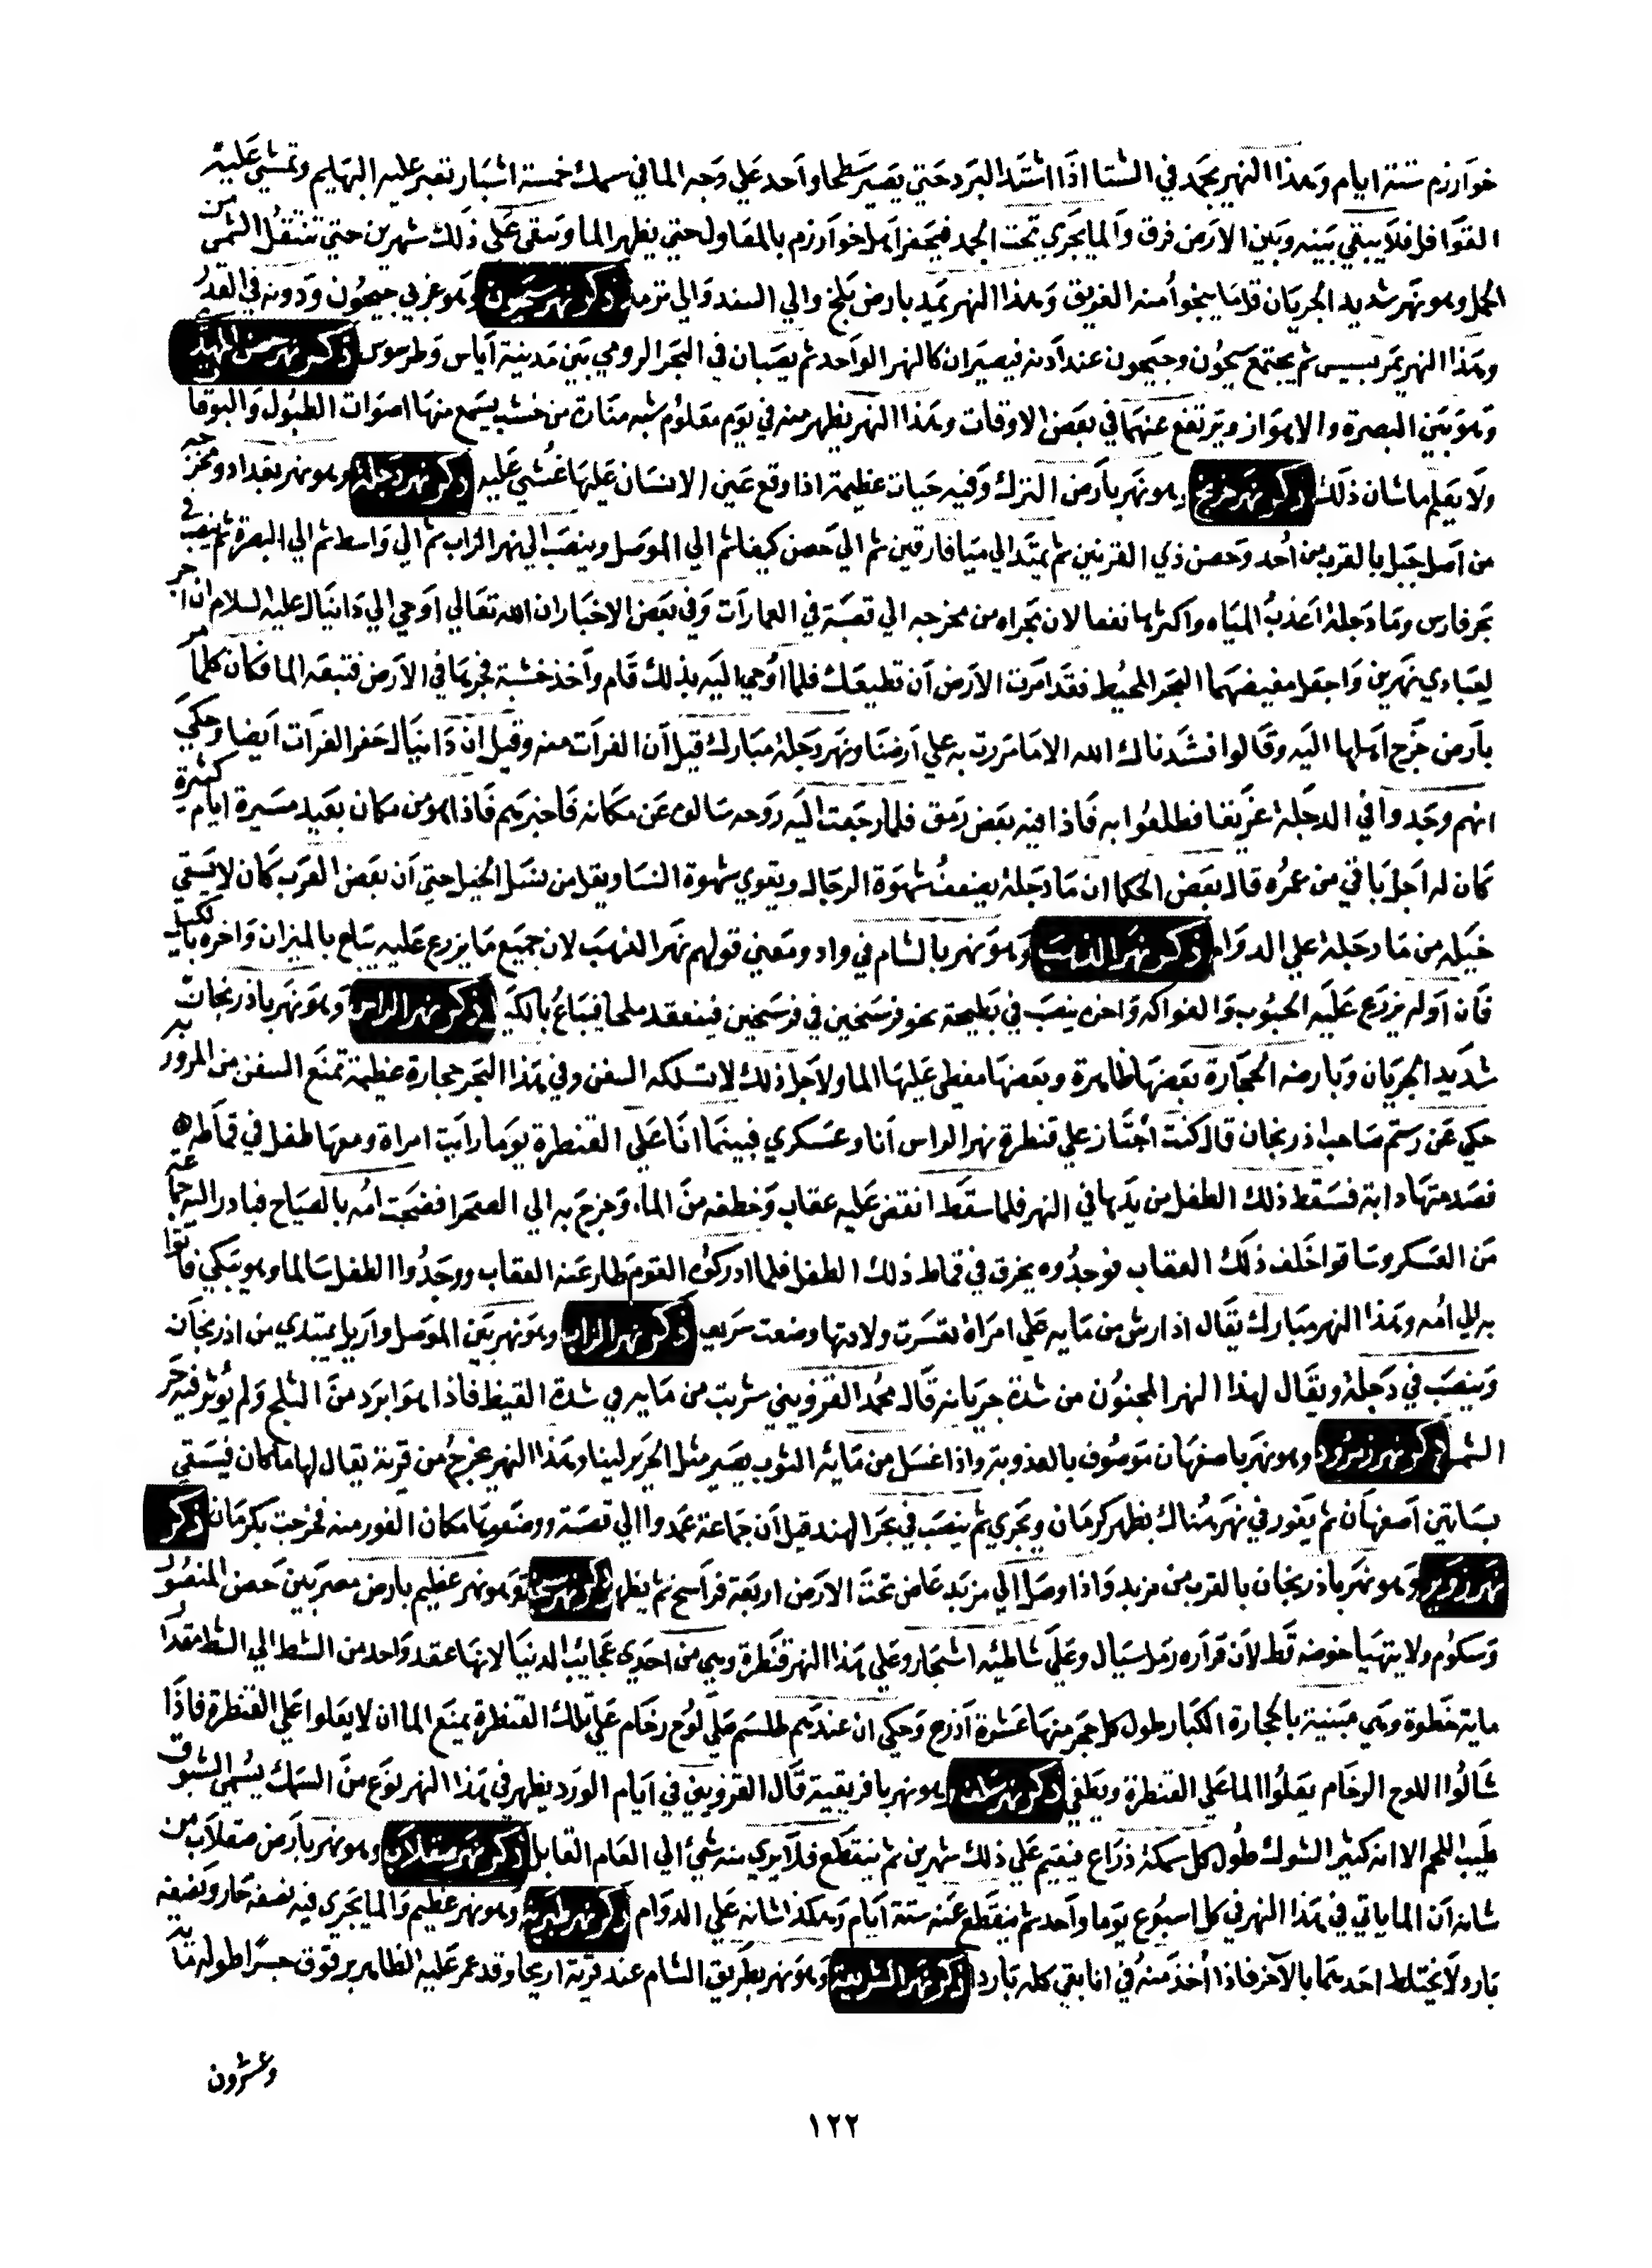 خوارزم ستة ايام وهذا النهر يجمد في الشتا اذا اشتد البرد حتي يصير سطحا واحد علي وجه الما في سمك خمسة اشبار تعبر عليه البهايم وتمشي عليه
القوافل فلا يبقي بينه وبين الارض فرق والما يجري تحت الجمد فيحفر اهل خوارزم بالمعاول حتي يظهر الما ويبقي علي ذلك شهرين حتي تنتقل الشمس من
الحمل وهو نهر شديد الجريان قل ما ينجوا منه الغريق وهذا النهر يمد بارض بلخ والي السغد والي ترمد ذكر نهر سيحون وهو غربي جيحون ودونه في القدر
وهذا النهر يمر بسيس ثم يجتمع سيحون وجيحون عند ادنه فيصيران كالنهر الواحد ثم يصبان في البحر الرومي بين مدينة اياس وطرسوس ذكر نهر حصن المهدي
وهو بين البصرة والاهواز ويرتفع عنهما في بعض الاوقات وهذا النهر يظهر منه في يوم معلوم شبه منارة من خشب يسمع منها اصوات الطبول والبوقا
ولا يعلم ما شان ذلك ذكر نهر وهو نهر بارض الترك وفيه حيات عظيمة اذا وقع عين الانسان عليها غشي عليه ذكر نهر دجلة وهو نهر بغداد ومخرجه
من اصل جبل بالقرب من امد وحصن ذي القرنين ثم يمتد الي ميافارقين ثم الي حصن كيفا ثم الي الموصل وينصب الي نهر الزاب ثم الي واسط ثم الي البصرة ثم ينصب في
بحر فارس وما دجلة اعذب المياه واكثرها نفعا لان مجراه من مخرجه الي قصبة في العمارات وفي بعض الاخبار ان الله تعالي اوحي الي دانيال عليه السلام ان احفر
لعبادي نهرين واجعل مفيضهما البحر المحيط فقد امرت الارض ان تطيعك فلما اوحي اليه بذلك قام واخذ خشبة فجرها في الارض فتبعه الما فكان كلما مر
بارض خرج اهلها اليه وقالوا نشدناك الله الا ما مررت به علي ارضنا ونهر دجلة مبارك قيل ان الفرات منه وقيل ان دانيال حفر الفرات ايضا وحكي
انهم وجدوا في الدجلة غريقا فطلعوا به فاذا فيه بعض رمق فلما رجعت اليه روحه سالوه عن مكانه فاخبرهم فاذا هو من مكان بعيد مسيرة ايام كثيرة
كان له اجل باقي من عمره قال بعض الحكما ان ما دجلة يضعف شهوة الرجال ويقوي شهوة النسا ويقل من نسل الخيل حتي ان بعض العرب كان لا يسقي
خيله من ما دجلة علي الدوام ذكر نهر الذهب وهو نهر بالشام في واد ومعني قولهم نهر الذهب لان جميع ما يزرع عليه يباع بالميزان واخره بالكيل
فان اوله يزرع عليه الحبوب والفواكه واخره ينصب في بطيحة نحو فرسخين في فرسخين فينعقد ملحا فيباع بالكيل ذكر نهر الراس وهو نهر باذربجان
شديد الجريان وبارضه الحجارة بعضها ظاهرة وبعضها مغطي عليها الما ولاجل ذلك لا تسلكه السفن وفي هذا البحر حجارة عظيمة تمنع السفن من المرور به
حكي عن رستم صاحب اذربجان قال كنت اجتاز علي قنطرة نهر الراس انا وعسكري فبينما انا علي القنطرة يوما رايت امراة ومعها طفل في قماطه
فصدمتها دابة فسقط ذلك الطفل من يدها في النهر فلما سقط انقض عليه عقاب وخطفه من الماء وخرج به الي الصحرا فضجت امه بالصياح فبادر اليه جماعة
من العسكر وساقوا خلف ذلك العقاب فوجدوه يخرق في قماط ذلك الطفل فلما ادركوه القوم طار عنه العقاب ووجدوا الطفل سالما وهو يبكي فاتوا
به الي امه وهذا النهر مبارك يقال اذا رش من مايه علي امراة تعسرت ولادتها وضعت سريعا ذكر نهر الزاب وهو نهر بين الموصل واربل يبتدي من اذربجان
وينصب في دجلة ويقال لهذا النهر المجنون من شدة جريانه قال محمد القزويني شربت من مايه في شدة القيظ فاذا هو ابرد من الثلج ولم يوثر فيه حر
الشمس ذكر نهر زمرود وهو نهر باصفهان موصوف بالعذوبة واذا غسل من مائه الثوب يصير مثل الحرير لينا وهذا النهر يخرج من قرية يقال لها ماكان فيسقي
بساتين اصفهان ثم يغور في نهر هناك يظهر كرمان ويجري ثم ينصب في بحر الهند قيل ان جماعة عمدوا الي قصبة ووضعوها مكان الغور منه فخرجت بكرمان ذكر
نهر زوير وهو نهر باذربجان بالقرب من مزيد واذا وصل الي مزيد غاض تحت الارض اربعة فراسخ ثم يظهر ذكر نهر سنجا وهو نهر عظيم بارض مصر بين حصن المنصور
وسكوم ولا يتهيا خوضه قط لان قراره رمل سيال وعلي شاطئه اشجار وعلي هذا النهر قنطرة وهي من احدي عجائب الدنيا لانها عقد واحد من الشط الي الشط مقدار
ماية خطوة وهي مبنية بالحجارة الكبار طول كل حجر منها عشرة اذرع وحكي ان عندهم طلسم علي لوح رخام علي تلك القنطرة يمنع الما ان لا يعلوا علي القنطرة فاذا
شالوا اللوح الرخام يعلوا الما علي القنطرة ويطغي ذكر نهر وهو نهر بافريقية قال القزويني في ايام الورد يظهر في هذا النهر نوع من السمك يسمي الشبوق
طيب اللحم الا انه كثير الشوك طول كل سمكة ذراع فيقيم علي ذلك شهرين ثم ينقطع فلا يري منه شئ الي العام القابل ذكر نهر صقلاب وهو نهر بارض صقلاب من
شانه ان الما ياتي في هذا النهر في كل اسبوع يوما واحد ثم ينقطع عنه ستة ايام وهكذا شانه علي الدوام ذكر نهر وهو نهر عظيم والما يجري فيه نصفه حار ونصفه
بارد ولا يختلط احدهما بالاخر فاذا اخذ منه في انا بقي كله بارد ذكر نهر الشريعة وهو نهر بطريق الشام عند قرية اريحا وقد عمر عليه الظاهر برقوق جسرا طوله ماية
وعشرون
١٢٢